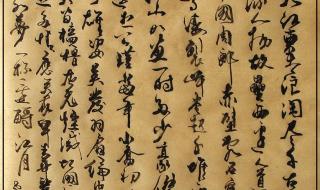 大江東去浪淘尽千古
流人物故壘西邊人道
國周郎赤壁
濤裂岸捲起千堆
一時多少豪
公瑾當年小喬初
雄姿英發羽扇綸
間檣櫓灰飛煙滅故國
多情應笑我早生華
夢一樽還酹江月